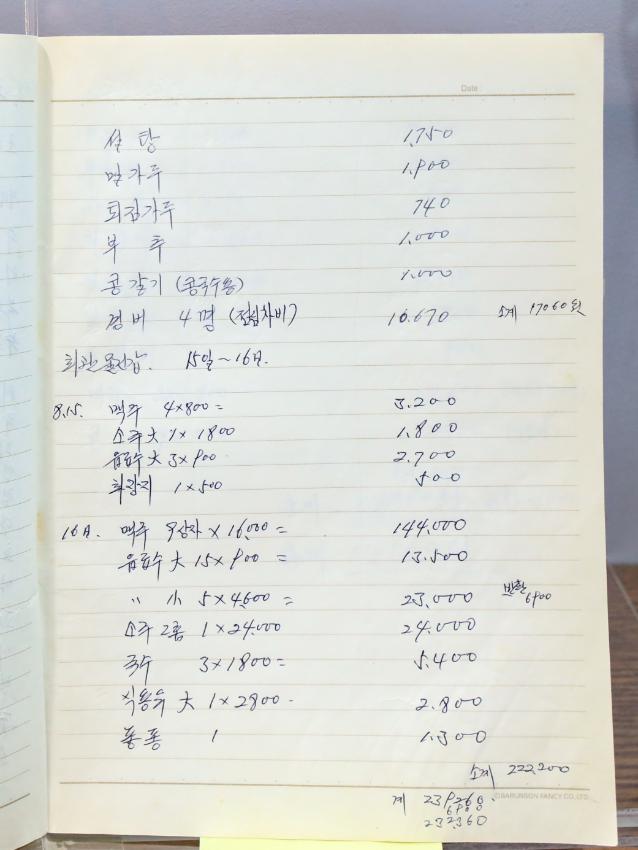 Date
설탕 1,750
밀가루 1,900
튀김가루 740
부추 1.000
콩갈기 (콩국수용) 1.000
경비 4명 (점심차비) 10.670 소계 17060원
회관 물건값. 15일 ~ 16日.
8.15. 맥주 4×800= 3.200
소주 大 1×1800 1.800
음료수 大 3×900 2.700
화장지 1×500 500
16日. 맥주 9상자 × 16,000= 144,000
음료수 大 15×900 = 13.500
〃 小 5×4,600 = 23,000 반환 6900
소주 2홉 1×24.000 24.000
국수 3×1800= 5.400
식용유 大 1×2800 2.800
퐁퐁 1 1.300
소계 222,200
계 239260.
6900
232360
©BARUNSON FANCY CO., LTD.